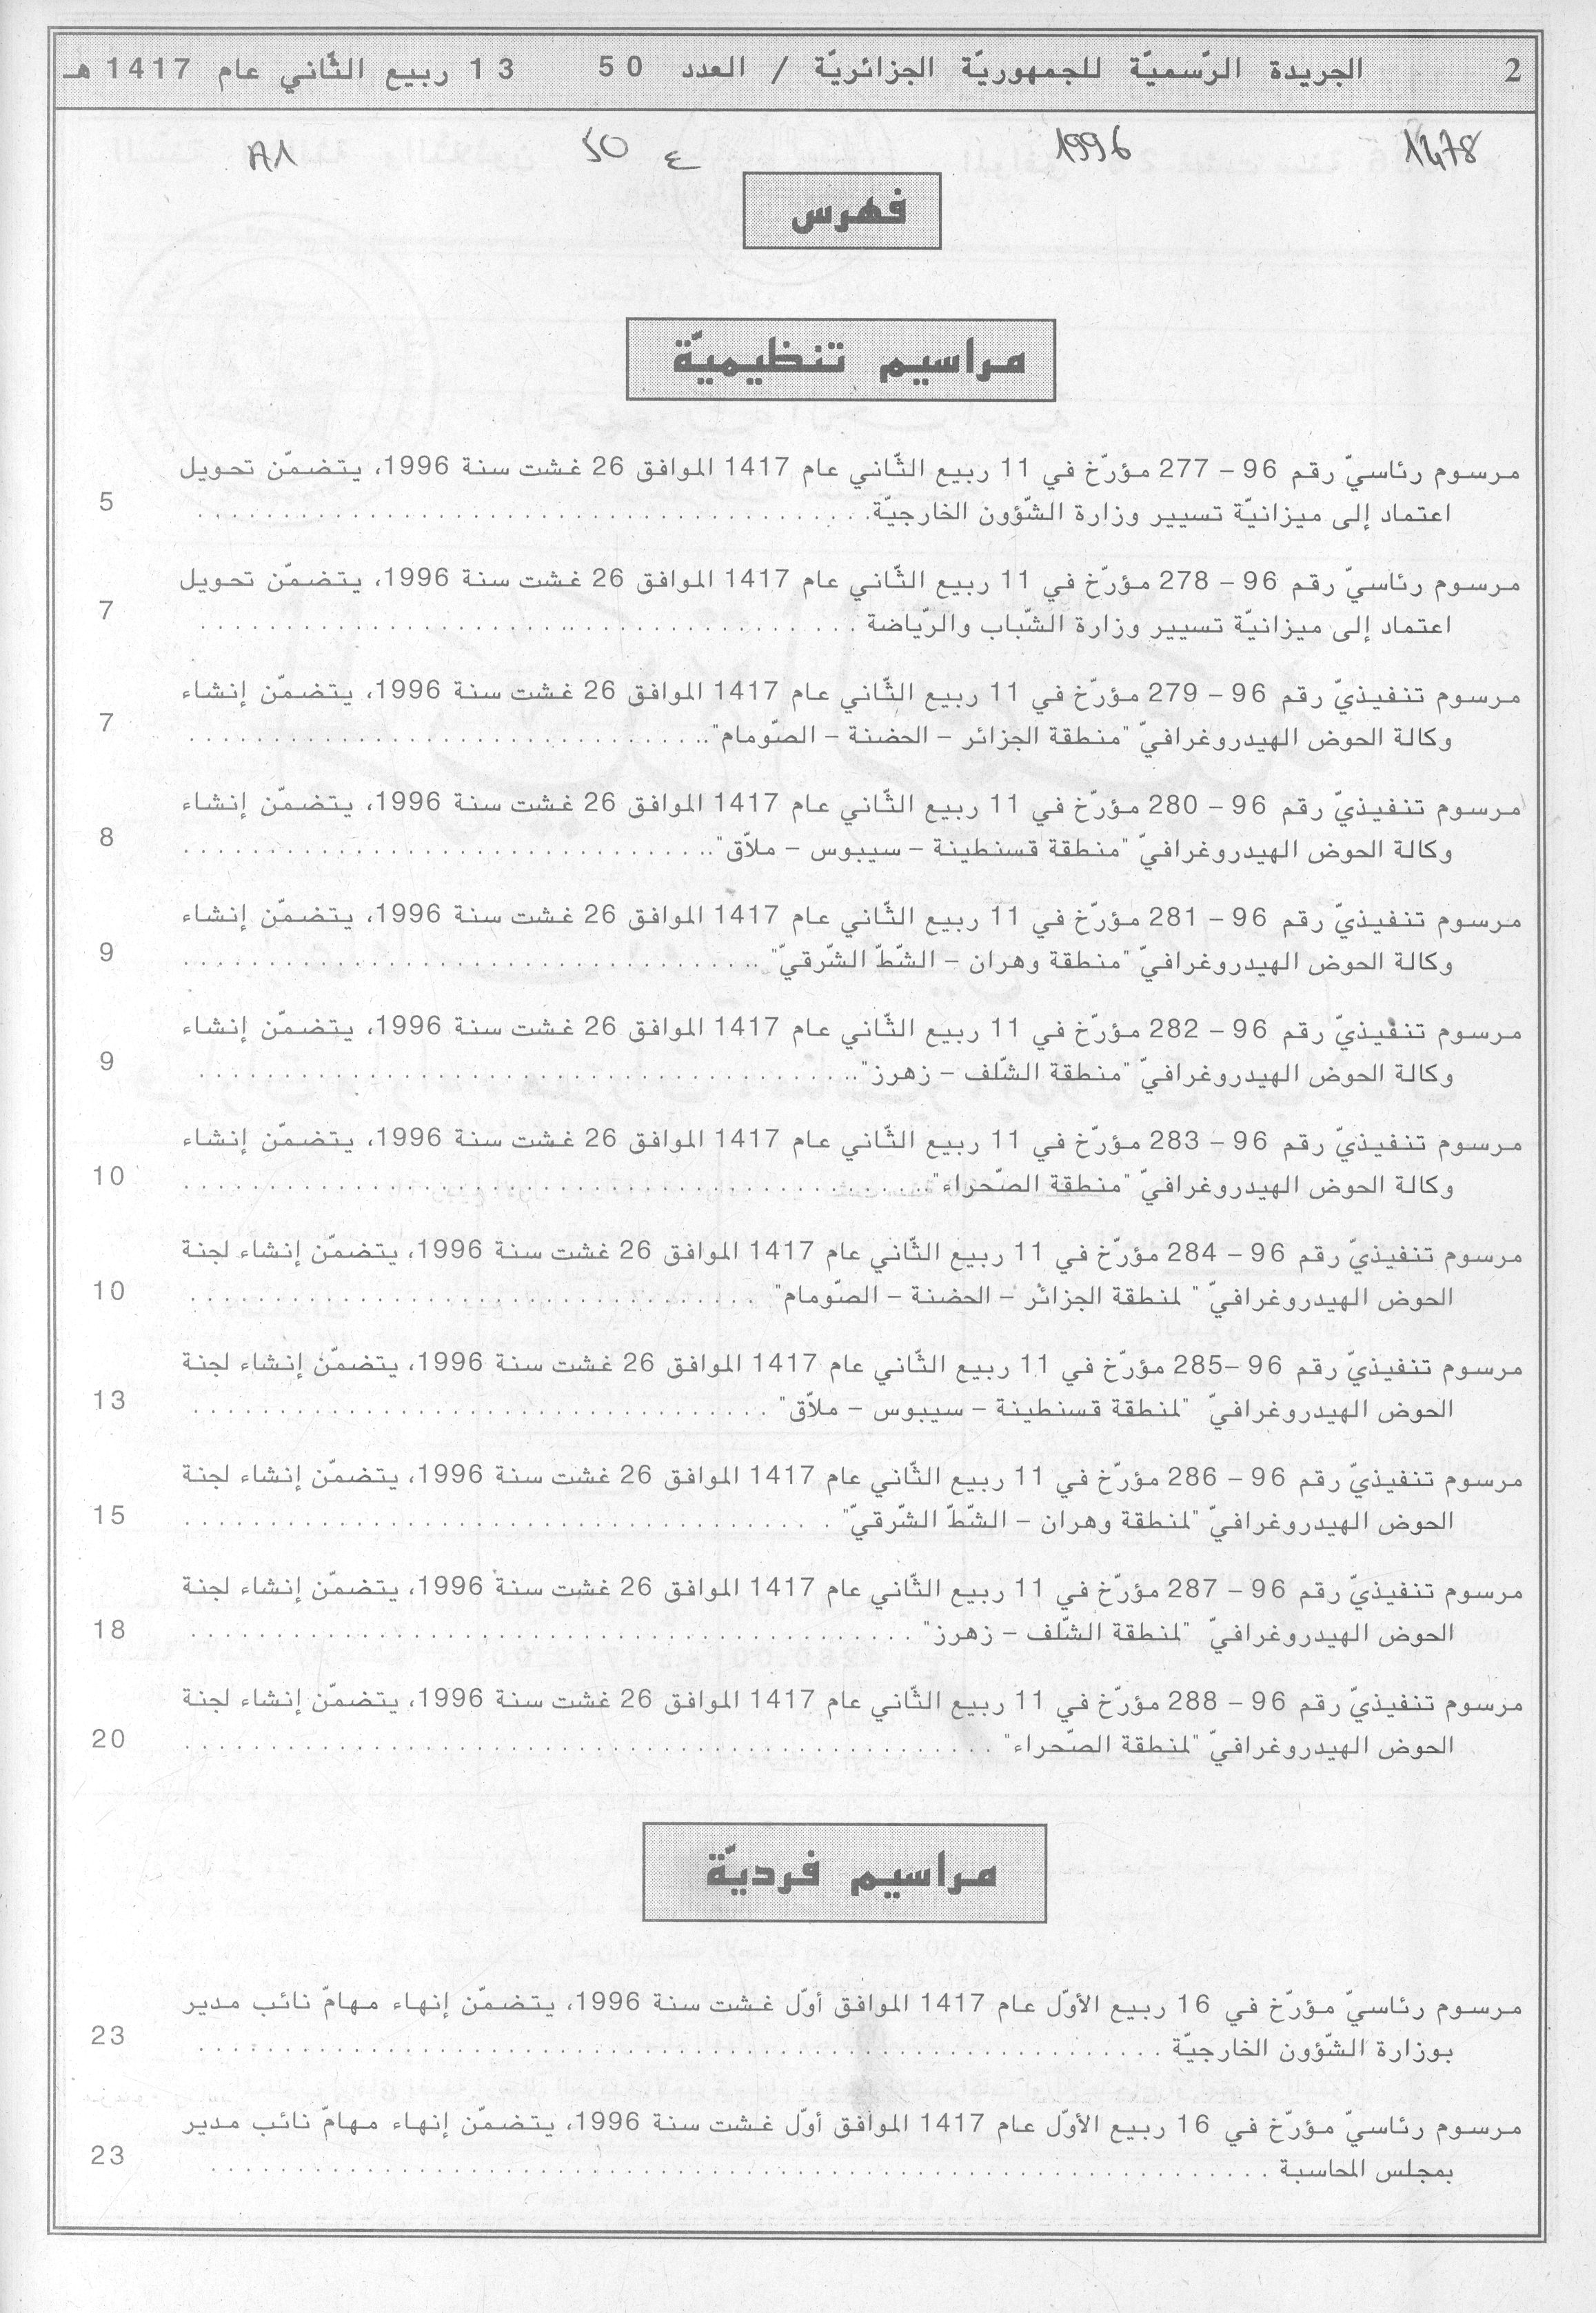 2 الجريدة الرّسميّة للجمهوريّة الجزائريّة / العدد 50 13 ربيع الثّاني عام 1417 هـ
1478 1996 ع 50 A1
فهرس
مراسيم تنظيميّة
مرسوم رئاسيّ رقم 96 – 277 مؤرّخ في 11 ربيع الثّاني عام 1417 الموافق 26 غشت سنة 1996، يتضمّن تحويل
اعتماد إلى ميزانيّة تسيير وزارة الشّؤون الخارجيّة. . . . . . . . . . . . . . . . . . . . 5
مرسوم رئاسيّ رقم 96 – 278 مؤرّخ في 11 ربيع الثّاني عام 1417 الموافق 26 غشت سنة 1996، يتضمّن تحويل
اعتماد إلى ميزانيّة تسيير وزارة الشّباب والرّياضة . . . . . . . . . . . . . . . . . . . . 7
مرسوم تنفيذيّ رقم 96 – 279 مؤرّخ في 11 ربيع الثّاني عام 1417 الموافق 26 غشت سنة 1996، يتضمّن إنشاء
وكالة الحوض الهيدروغرافيّ "منطقة الجزائر – الحضنة – الصّومام". . . . . . . . . . . . . . . . . . . . 7
مرسوم تنفيذيّ رقم 96 – 280 مؤرّخ في 11 ربيع الثّاني عام 1417 الموافق 26 غشت سنة 1996، يتضمّن إنشاء
وكالة الحوض الهيدروغرافيّ "منطقة قسنطينة – سيبوس – ملاّق". . . . . . . . . . . . . . . . . . . . 8
مرسوم تنفيذيّ رقم 96 – 281 مؤرّخ في 11 ربيع الثّاني عام 1417 الموافق 26 غشت سنة 1996، يتضمّن إنشاء
وكالة الحوض الهيدروغرافيّ "منطقة وهران – الشّطّ الشّرقيّ" . . . . . . . . . . . . . . . . . . . . 9
مرسوم تنفيذيّ رقم 96 – 282 مؤرّخ في 11 ربيع الثّاني عام 1417 الموافق 26 غشت سنة 1996، يتضمّن إنشاء
وكالة الحوض الهيدروغرافيّ "منطقة الشّلف – زهرز". . . . . . . . . . . . . . . . . . . . 9
مرسوم تنفيذيّ رقم 96 – 283 مؤرّخ في 11 ربيع الثّاني عام 1417 الموافق 26 غشت سنة 1996، يتضمّن إنشاء
وكالة الحوض الهيدروغرافيّ "منطقة الصّحراء". . . . . . . . . . . . . . . . . . . . 10
مرسوم تنفيذيّ رقم 96 – 284 مؤرّخ في 11 ربيع الثّاني عام 1417 الموافق 26 غشت سنة 1996، يتضمّن إنشاء لجنة
الحوض الهيدروغرافيّ " لمنطقة الجزائر – الحضنة – الصّومام" . . . . . . . . . . . . . . . . . . . . 10
مرسوم تنفيذيّ رقم 96 –285 مؤرّخ في 11 ربيع الثّاني عام 1417 الموافق 26 غشت سنة 1996، يتضمّن إنشاء لجنة
الحوض الهيدروغرافيّ "لمنطقة قسنطينة – سيبوس – ملاّق" . . . . . . . . . . . . . . . . . . . . 13
مرسوم تنفيذيّ رقم 96 – 286 مؤرّخ في 11 ربيع الثّاني عام 1417 الموافق 26 غشت سنة 1996، يتضمّن إنشاء لجنة
الحوض الهيدروغرافيّ "لمنطقة وهران – الشّطّ الشّرقيّ" . . . . . . . . . . . . . . . . . . . . 15
مرسوم تنفيذيّ رقم 96 – 287 مؤرّخ في 11 ربيع الثّاني عام 1417 الموافق 26 غشت سنة 1996، يتضمّن إنشاء لجنة
الحوض الهيدروغرافيّ "لمنطقة الشّلف – زهرز" . . . . . . . . . . . . . . . . . . . . 18
مرسوم تنفيذيّ رقم 96 – 288 مؤرّخ في 11 ربيع الثّاني عام 1417 الموافق 26 غشت سنة 1996، يتضمّن إنشاء لجنة
الحوض الهيدروغرافيّ "لمنطقة الصّحراء" . . . . . . . . . . . . . . . . . . . . 20
مراسيم فرديّة
مرسوم رئاسيّ مؤرّخ في 16 ربيع الأوّل عام 1417 الموافق أوّل غشت سنة 1996، يتضمّن إنهاء مهامّ نائب مدير
بوزارة الشّؤون الخارجيّة . . . . . . . . . . . . . . . . . . . . 23
مرسوم رئاسيّ مؤرّخ في 16 ربيع الأوّل عام 1417 الموافق أوّل غشت سنة 1996، يتضمّن إنهاء مهامّ نائب مدير
بمجلس المحاسبة . . . . . . . . . . . . . . . . . . . . 23